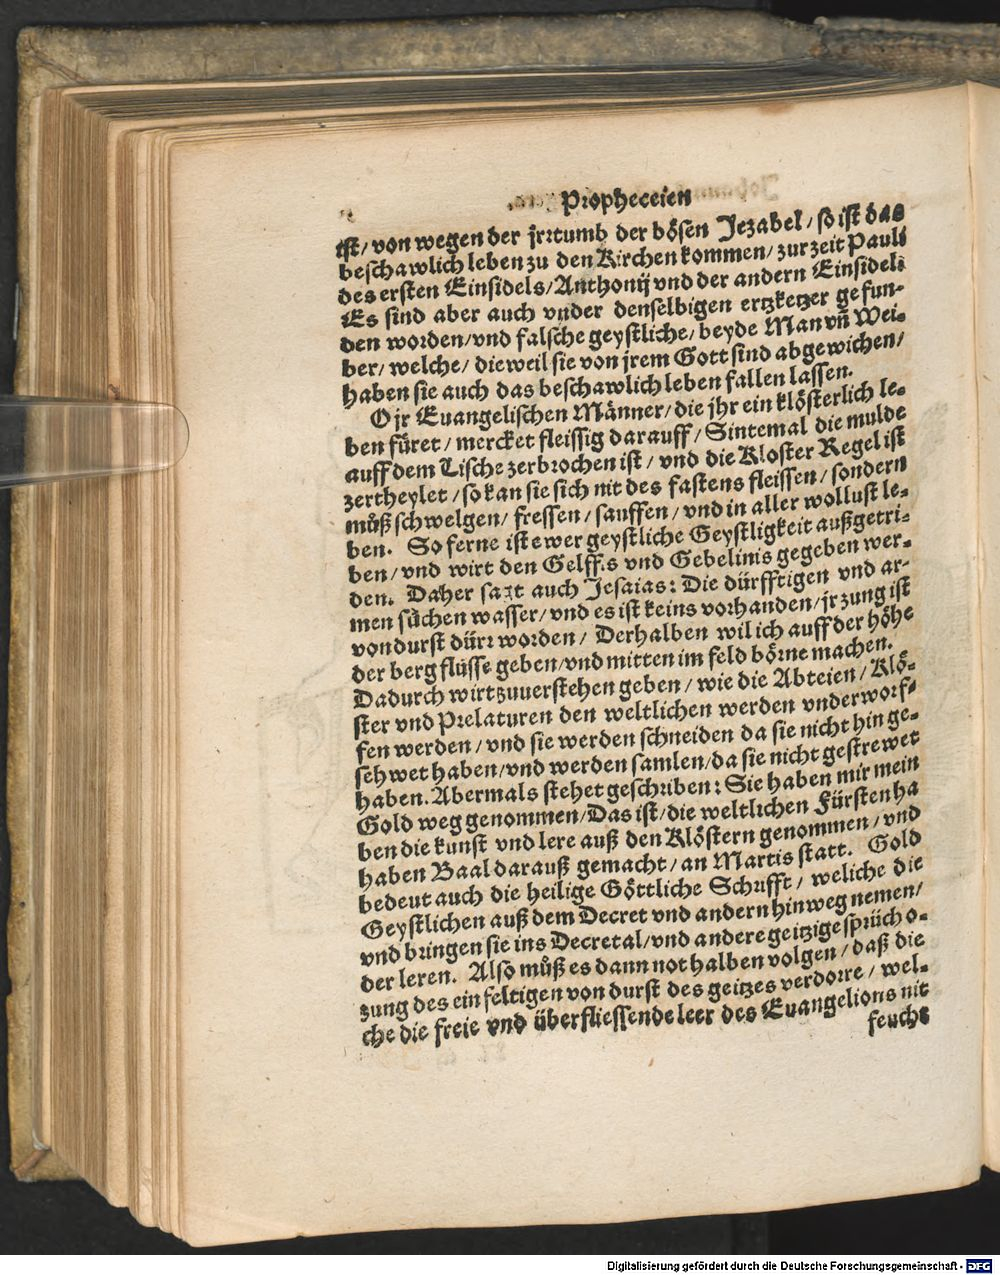 Propheceien
ist/ von wegen der jrrtumb der bösen Jezabel/ so ist das
beschawlich leben zu den Kirchen kommen/ zur zeit Pauli
des ersten Einsidels/ Anthonij vnd der andern Einsidel.
Es sind aber auch vnder denselbigen ertzketzer gefun-
den worden/ vnd falsche geystliche/ beyde Man vñ Wei-
ber/ welche/ dieweil sie von jrem Gott sind abgewichen/
haben sie auch das beschawlich leben fallen lassen.
O jr Euangelischen Männer/ die jhr ein klösterlich le-
ben füret/ mercket fleissig darauff/ Sintemal die mulde
auff dem Tische zerbrochen ist/ vnd die Kloster Regel ist
zertheylet/ so kan sie sich nit des fastens fleissen/ sondern
můß schwelgen/ fressen/ sauffen/ vnd in aller wollust le-
ben. So ferne ist ewer geystliche Geystligkeit außgetri-
ben/ vnd wirt den Gelffis vnd Gebelinis gegeben wer-
den. Daher sagt auch Jesaias: Die dürfftigen vnd ar-
men sůchen wasser/ vnd es ist keins vorhanden/ jr zung ist
von durst dürr worden/ Derhalben wil ich auff der höhe
der berg flüsse geben/ vnd mitten im feld börne machen.
Dadurch wirt zuuerstehen geben/ wie die Abteien/ Klö-
ster vnd Prelaturen den weltlichen werden vnderworf-
fen werden/ vnd sie werden schneiden da sie nicht hin ge-
sehwet haben/ vnd werden samlen/ da sie nicht gestrewet
haben. Abermals stehet geschriben: Sie haben mir mein
Gold weg genommen/ Das ist/ die weltlichen Fürsten ha
ben die kunst vnd lere auß den Klöstern genommen/ vnd
haben Baal darauß gemacht/ an Martis statt. Gold
bedeut auch die heilige Göttliche Schrifft/ weliche die
Geystlichen auß dem Decret vnd andern hinweg nemen/
vnd bringen sie ins Decretal/ vnd andere geitzige sprüch o-
der leren. Also můß es dann not halben volgen/ daß die
zung des einfeltigen von durst des geitzes verdorre/ wel-
che die freie vnd überfliessende leer des Euangelions nit
feucht
Digitalisierung gefördert durch die Deutsche Forschungsgemeinschaft - DFG